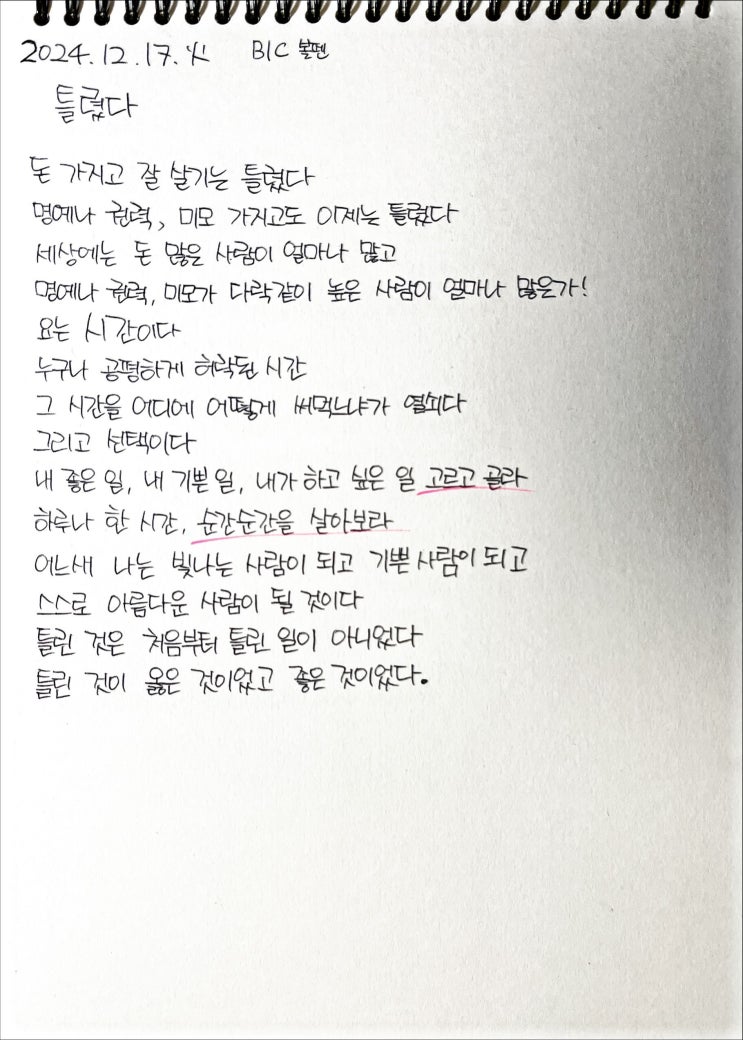 2024.12.17.火 BIC 볼펜
틀렸다
돈 가지고 잘 살기는 틀렸다
명예나 권력, 미모 가지고도 이제는 틀렸다
세상에는 돈 많은 사람이 얼마나 많고
명예나 권력, 미모가 다락같이 높은 사람이 얼마나 많은가!
요는 시간이다
누구나 공평하게 허락된 시간
그 시간을 어디에 어떻게 써먹느냐가 열쇠다
그리고 선택이다
내 좋은 일, 내 기쁜 일, 내가 하고 싶은 일 고르고 골라
하루나 한 시간, 순간순간을 살아보라
어느새 나는 빛나는 사람이 되고 기쁜 사람이 되고
스스로 아름다운 사람이 될 것이다
틀린 것은 처음부터 틀린 일이 아니었다
틀린 것이 옳은 것이었고 좋은 것이었다.